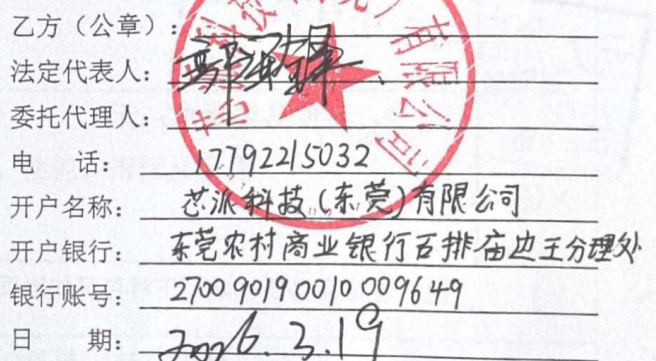 乙方（公章）：
法定代表人：
委托代理人：
电 话： 17792215032
开户名称： 芯派科技（东莞）有限公司
开户银行： 东莞农村商业银行石排庙边王分理处
银行账号： 270090190010009649
日 期： 2026.3.19